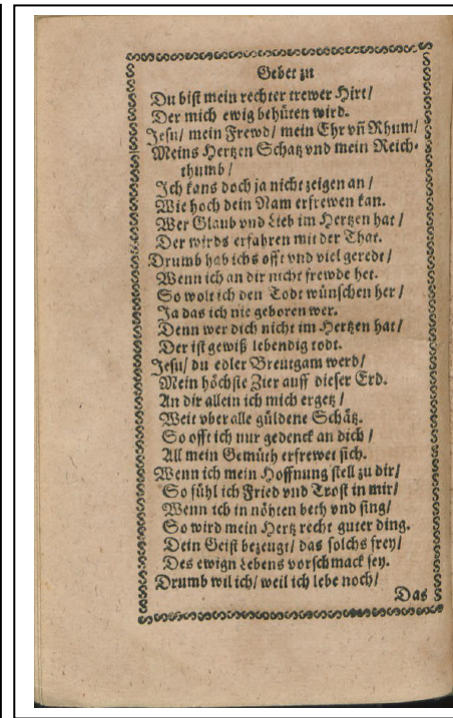 Gebet zu
Du bist mein rechter trewer Hirt/
Der mich ewig behüten wird.
Jesu/ mein Frewd/ mein Ehr vñ Rhum/
Meins Hertzen Schatz vnd mein Reich-
thumb/
Ich kans doch ja nicht zeigen an/
Wie hoch dein Nam erfrewen kan.
Wer Glaub vnd Lieb im Hertzen hat/
Der wirds erfahren mit der That.
Drumb hab ichs offt vnd viel geredt/
Wenn ich an dir nicht frewde het.
So wolt ich den Todt wünschen her/
Ja das ich nie geboren wer.
Denn wer dich nicht im Hertzen hat/
Der ist gewiß lebendig todt.
Jesu/ du edler Breutgam werd/
Mein höchste Zier auff dieser Erd.
An dir allein ich mich ergetz/
Weit vber alle güldene Schätz.
So offt ich nur gedenck an dich/
All mein Gemüth erfrewet sich.
Wenn ich mein Hoffnung stell zu dir/
So fühl ich Fried vnd Trost in mir/
Wenn ich in nöhten beth vnd sing/
So wird mein Hertz recht guter ding.
Dein Geist bezeugt/ das solchs frey/
Des ewign Lebens vorschmack sey.
Drumb wil ich/ weil ich lebe noch/
Das